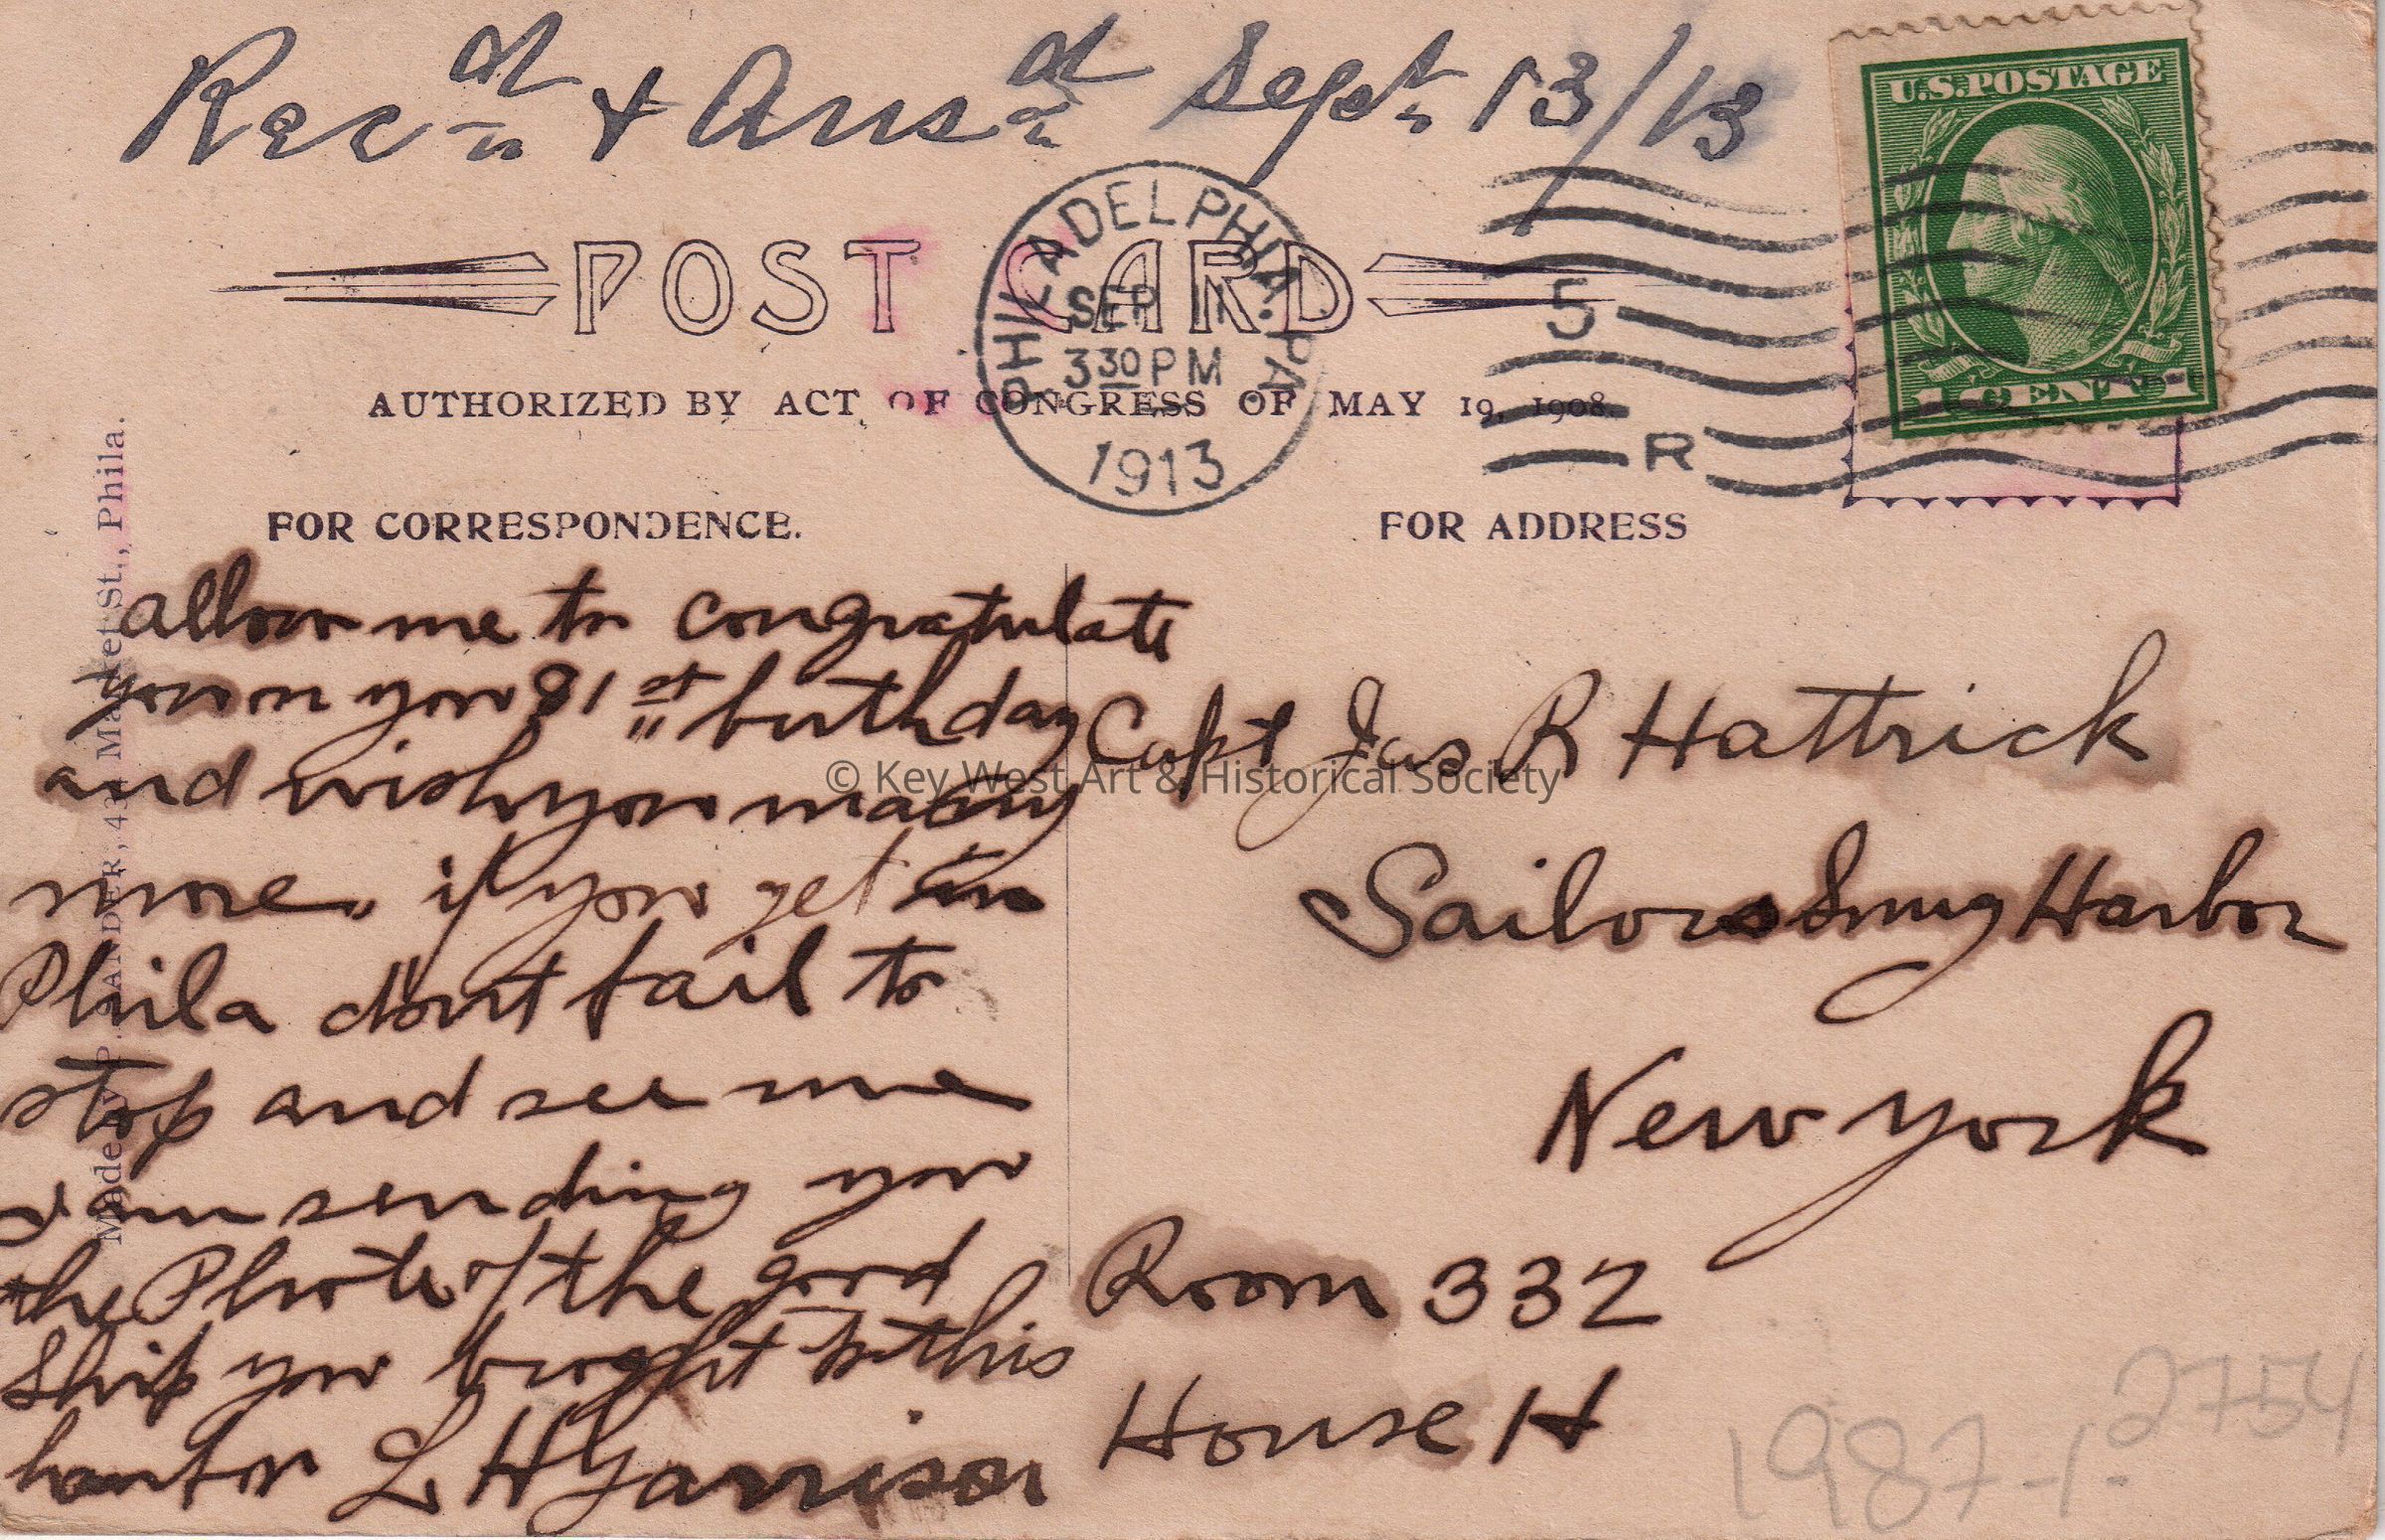 Recd & Ansd Sept 13/13
U.S. POSTAGE
1 CENT 1
PHILADELPHIA, PA.
SEP 11
3 30 PM
1913
5
R
POST CARD
AUTHORIZED BY ACT OF CONGRESS OF MAY 19, 1908.
FOR CORRESPONDENCE.
FOR ADDRESS
allow me to congratulate
you on your 81st birthday
and wish you many
more. if you get in
Phila dont fail to
stop and see me
I am sending you
the Photo of the good
Ship you bought
L H Garrison
Capt Jas R Hattrick
Sailors Snug Harbor
New york
Room 332
House H
Made by P. SANDER, 43 Market St., Phila.
© Key West Art & Historical Society
1987-1-2754